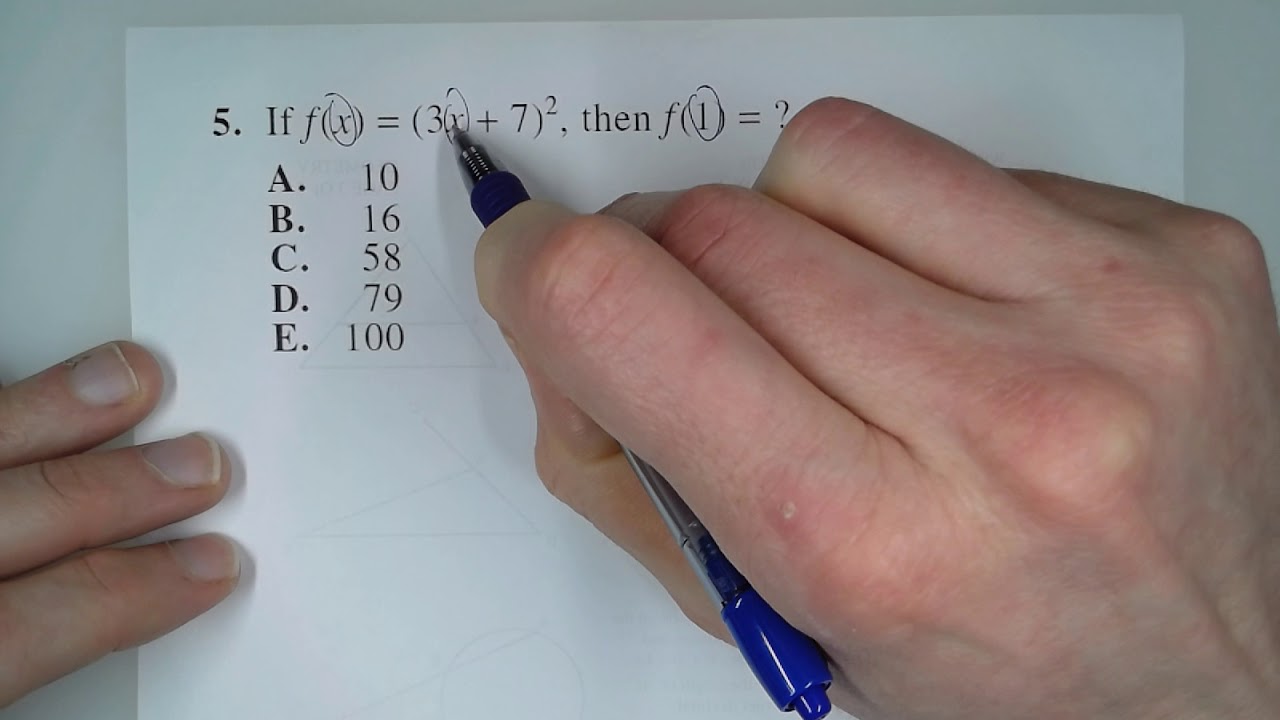 5. If f(x) = (3x + 7)², then f(1) = ?
A. 10
B. 16
C. 58
D. 79
E. 100